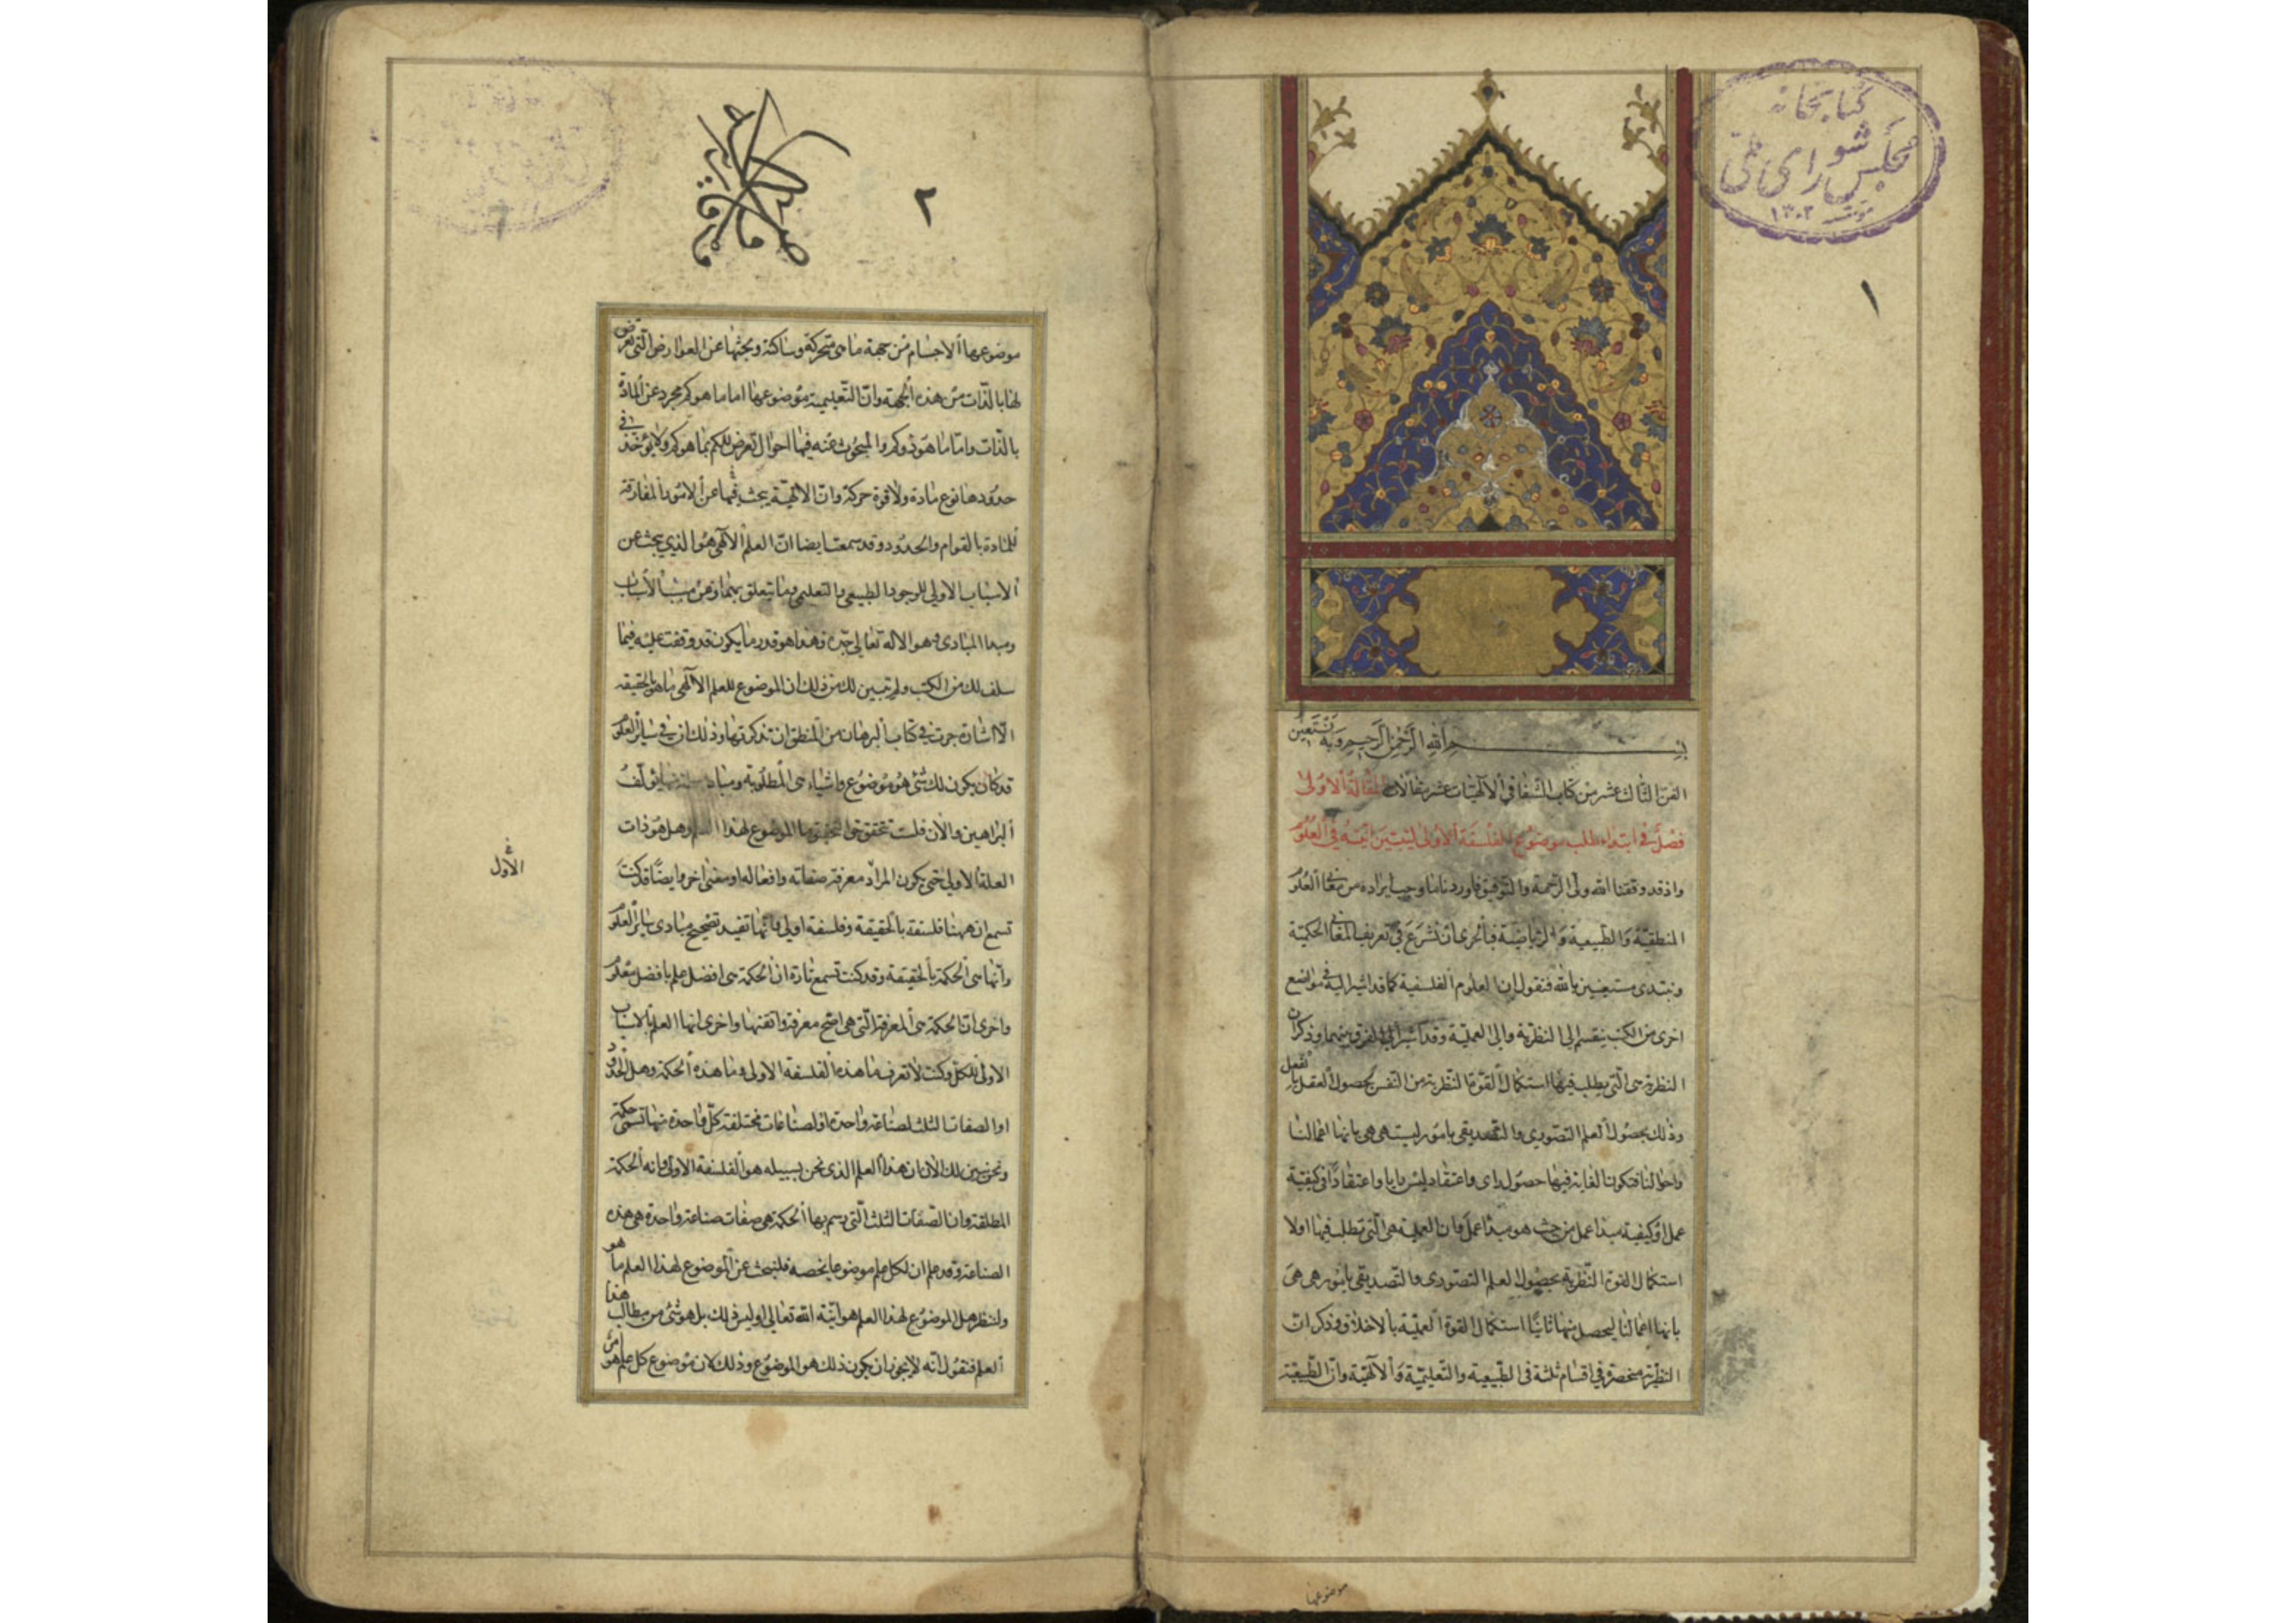 كتابخانه
مجلس شورای ملی
١٣٠٢
١
بسم الله الرحمن الرحيم وبه نستعين
الفن الثالث عشر من كتاب الشفا في الالهيات عشر مقالات المقالة الاولى
فصل في ابتداء طلب موضوع الفلسفة الاولى ليتبين انيته في العلوم
واذ قد وفقنا الله ولى الرحمة والتوفيق فاوردنا ما وجب ايراده من معاني العلوم
المنطقية والطبيعية والرياضية فبالحرى ان نشرع في تعريف المعاني الحكمية
ونبتدى مستعينين بالله فنقول ان العلوم الفلسفية كما قد اشير اليه في مواضع
اخرى من الكتب ينقسم الى النظرية والى العملية وقد اشير الى الفرق بينهما وذكر ان
النظرية هى التى يطلب فيها استكمال القوة النظرية من النفس بحصول العقل بالفعل
وذلك بحصول العلم التصوري والتصديقى بامور ليست هى هى بانها اعمالنا
واحوالنا فتكون الغاية فيها حصول راى واعتقاد ليس رايا واعتقادا في كيفية
عمل او كيفية مبدا عمل من حيث هو مبدا عمل وان العملية هى التى تطلب فيها اولا
استكمال القوة النظرية بحصول العلم التصورى والتصديقى بامور هى هى
بانها اعمالنا ليحصل منها ثانيا استكمال القوة العملية بالاخلاق وذكر ان
النظرية منحصرة في اقسام ثلثة فى الطبيعية والتعليمية والالهية وان الطبيعية
موضوعها
٢
موضوعها الاجسام من جهة ما هى متحركة وساكنة وبحثها عن العوارض التى تعرض
لها بالذات من هذه الجهة وان التعليمية موضوعها اما ما هو كم مجرد عن المادة
بالذات واما ما هو ذو كم والمبحوث عنه فيها احوال تعرض للكم بما هو كم ولا يؤخذ في
حدودها نوع مادة ولا قوة حركة وان الالهية يبحث فيها عن الامور المفارقة
للمادة بالقوام والحدود وقد سمعت ايضا ان العلم الالهى هو الذي يبحث عن
الاسباب الاولى للوجود الطبيعى والتعليمى وما يتعلق بهما وعن مسبب الاسباب
ومبدا المبادى وهو الاله تعالى جده وهذا هو قدر ما يكون قد وقفت عليه فيما
سلف لك من الكتب ولم يتبين لك من ذلك ان الموضوع للعلم الالهى ما هو بالحقيقة
الا اشارة جرت في كتاب البرهان من المنطق ان تذكرتها وذلك ان في سائر العلوم
قد كان يكون لك شئ هو موضوع واشياء هى المطلوبة ومباد منها يؤلف
البراهين والان فلست تحقق حق التحقيق ما الموضوع لهذا العلم وهل هو ذات
العلة الاولى حتى يكون المراد معرفة صفاته وافعاله او معنى اخر وايضا قد كنت
تسمع ان ههنا فلسفة بالحقيقة وفلسفة اولى وانها تفيد تصحيح مبادى سائر العلوم
وانها هى الحكمة بالحقيقة وقد كنت تسمع تارة ان الحكمة هى افضل علم بافضل معلوم
واخرى ان الحكمة هى المعرفة التى هى اصح معرفة واتقنها واخرى انها العلم بالاسباب
الاولى للكل وكنت لا تعرف ما هذه الفلسفة الاولى وما هذه الحكمة وهل الحدود
او الصفات الثلث لصناعة واحدة او لصناعات مختلفة كل واحدة منها تسمى حكمة
ونحن نبين لك الان ان هذا العلم الذى نحن بسبيله هو الفلسفة الاولى وانه الحكمة
المطلقة وان الصفات الثلث التى رسم بها الحكمة هى صفات صناعة واحدة هى هذه
الصناعة وقد علم ان لكل علم موضوعا يخصه فلنبحث عن الموضوع لهذا العلم ما هو
ولننظر هل الموضوع لهذا العلم هو انية الله تعالى او ليس ذلك بل هو شئ من مطالب هذا
العلم فنقول انه لا يجوز ان يكون ذلك هو الموضوع وذلك لان موضوع كل علم هو امر
الاول